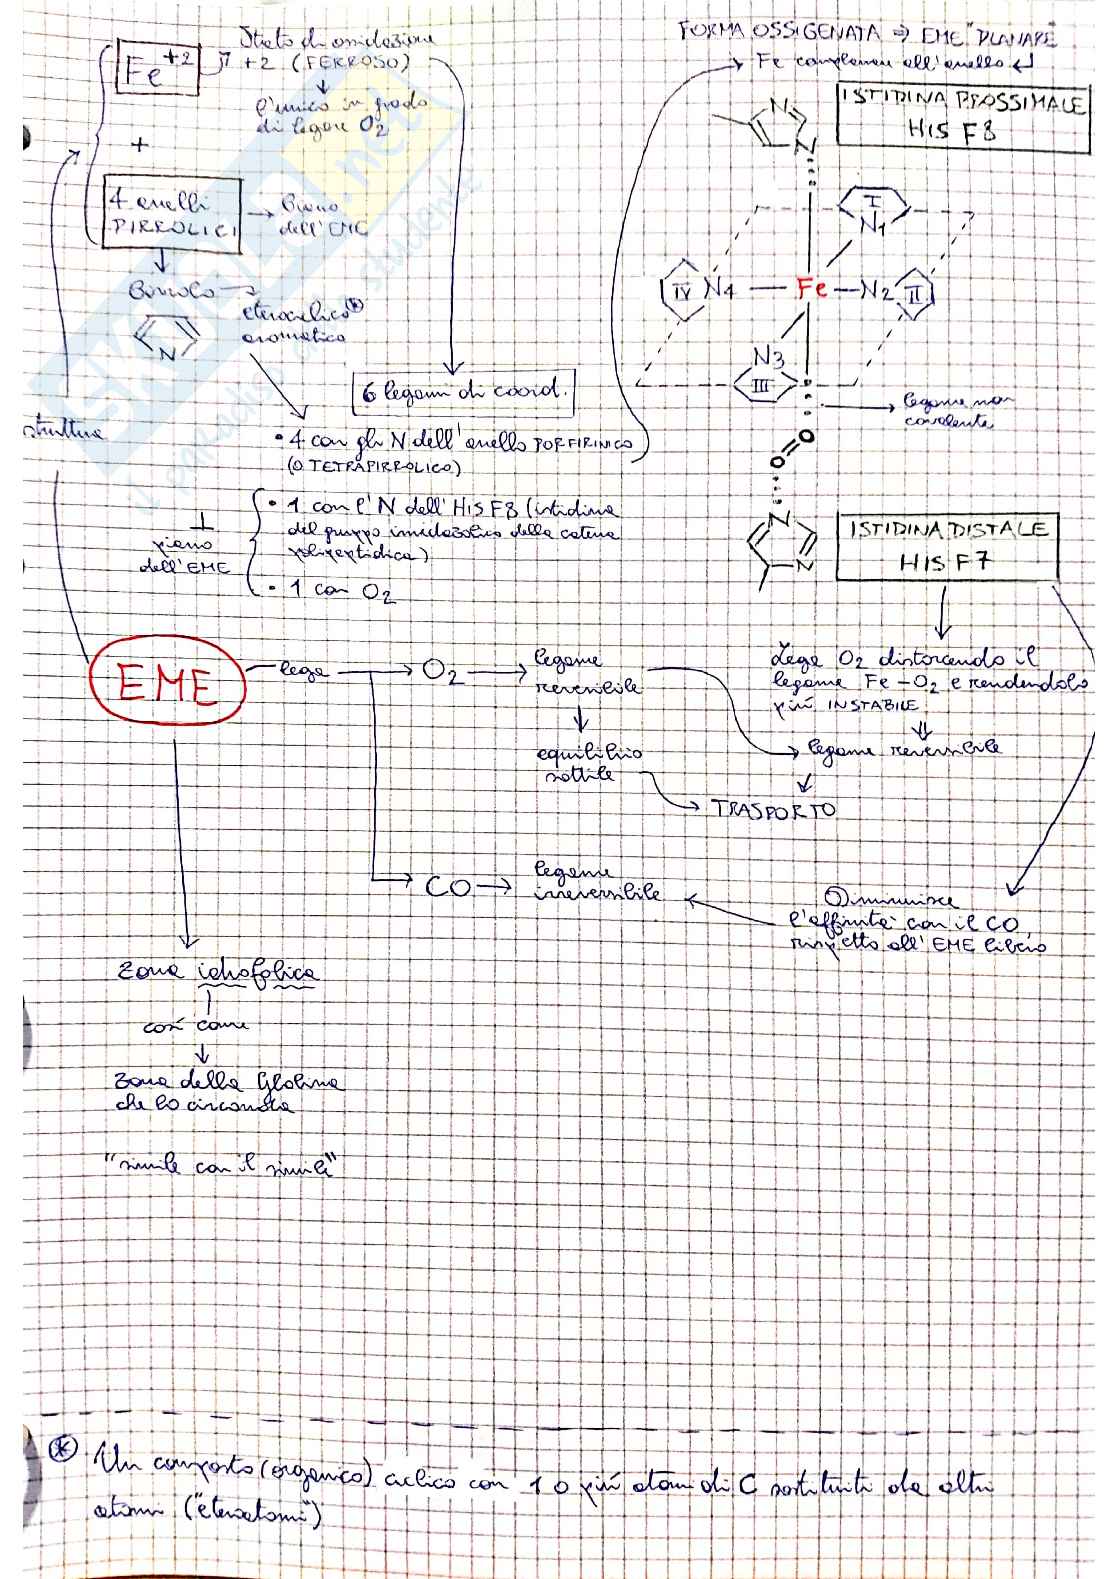 Stato di ossidazione
Fe+2 +2 (FERROSO)
l'unico in grado
di legare O2
+
4 anelli
PIRROLICI
Piano
dell'EME
Pirrolo
eterociclico *
aromatico
N
struttura
6 legami di coord.
• 4 con gli N dell'anello PORFIRINICO
(O TETRAPIRROLICO)
⊥
piano
dell'EME
• 1 con l'N dell'HIS F8 (istidina
del gruppo imidazolico della catena
polipeptidica)
• 1 con O2
FORMA OSSIGENATA ⇒ EME "PLANARE"
Fe complanare all'anello
ISTIDINA PROSSIMALE
HIS F8
N
N
I
N1
IV N4 Fe N2 II
N3
III
legame non
covalente
O
O
N
N
ISTIDINA DISTALE
HIS F7
EME
lega
O2
legame
reversibile
equilibrio
sottile
Lega O2 distorcendo il
legame Fe-O2 e rendendolo
più INSTABILE
legame reversibile
TRASPORTO
CO
legame
irreversibile
Diminuisce
l'affinità con il CO,
rispetto all'EME libero
zona idrofobica
così come
zona della Globina
che lo circonda
"simile con il simile"
* Un composto (organico) ciclico con 1 o più atomi di C sostituiti da altri
atomi ("eteroatomi")